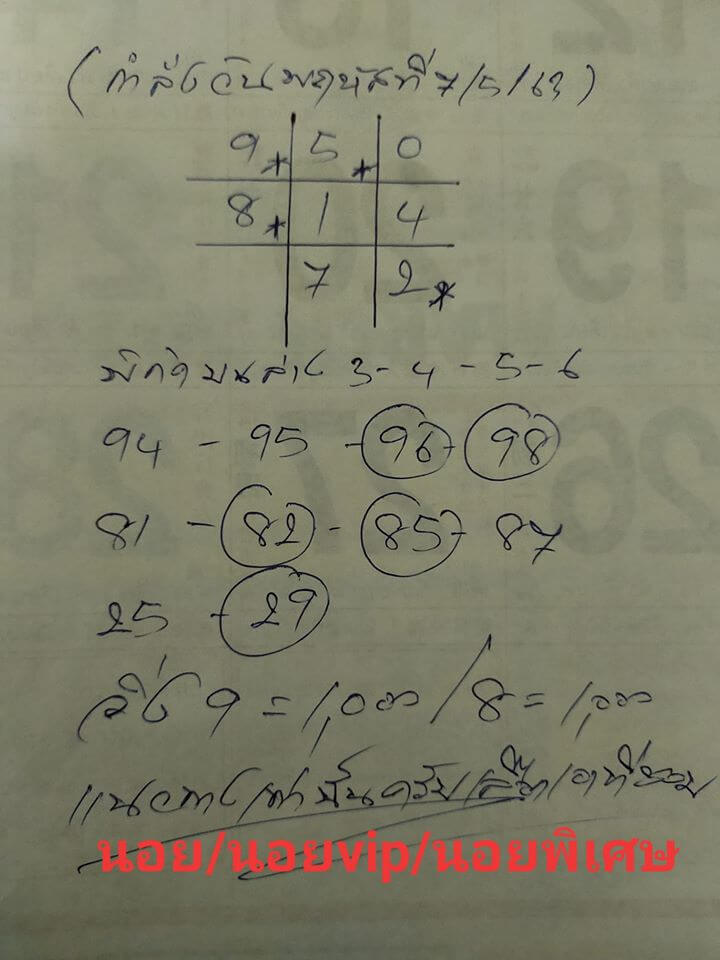 (กำลังวันพฤหัสที่ 7/5/63)
9* 5* 0
8* 1 4
7 2*
พิกัดบนล่าง 3-4-5-6
94 - 95 - 96 - 98
81 - 82 - 85 - 87
25 - 29
วิ่ง 9 = 1,000 / 8 = 1,000
แนวทางเท่านั้นครับ
นอย/นอยvip/นอยพิเศษ